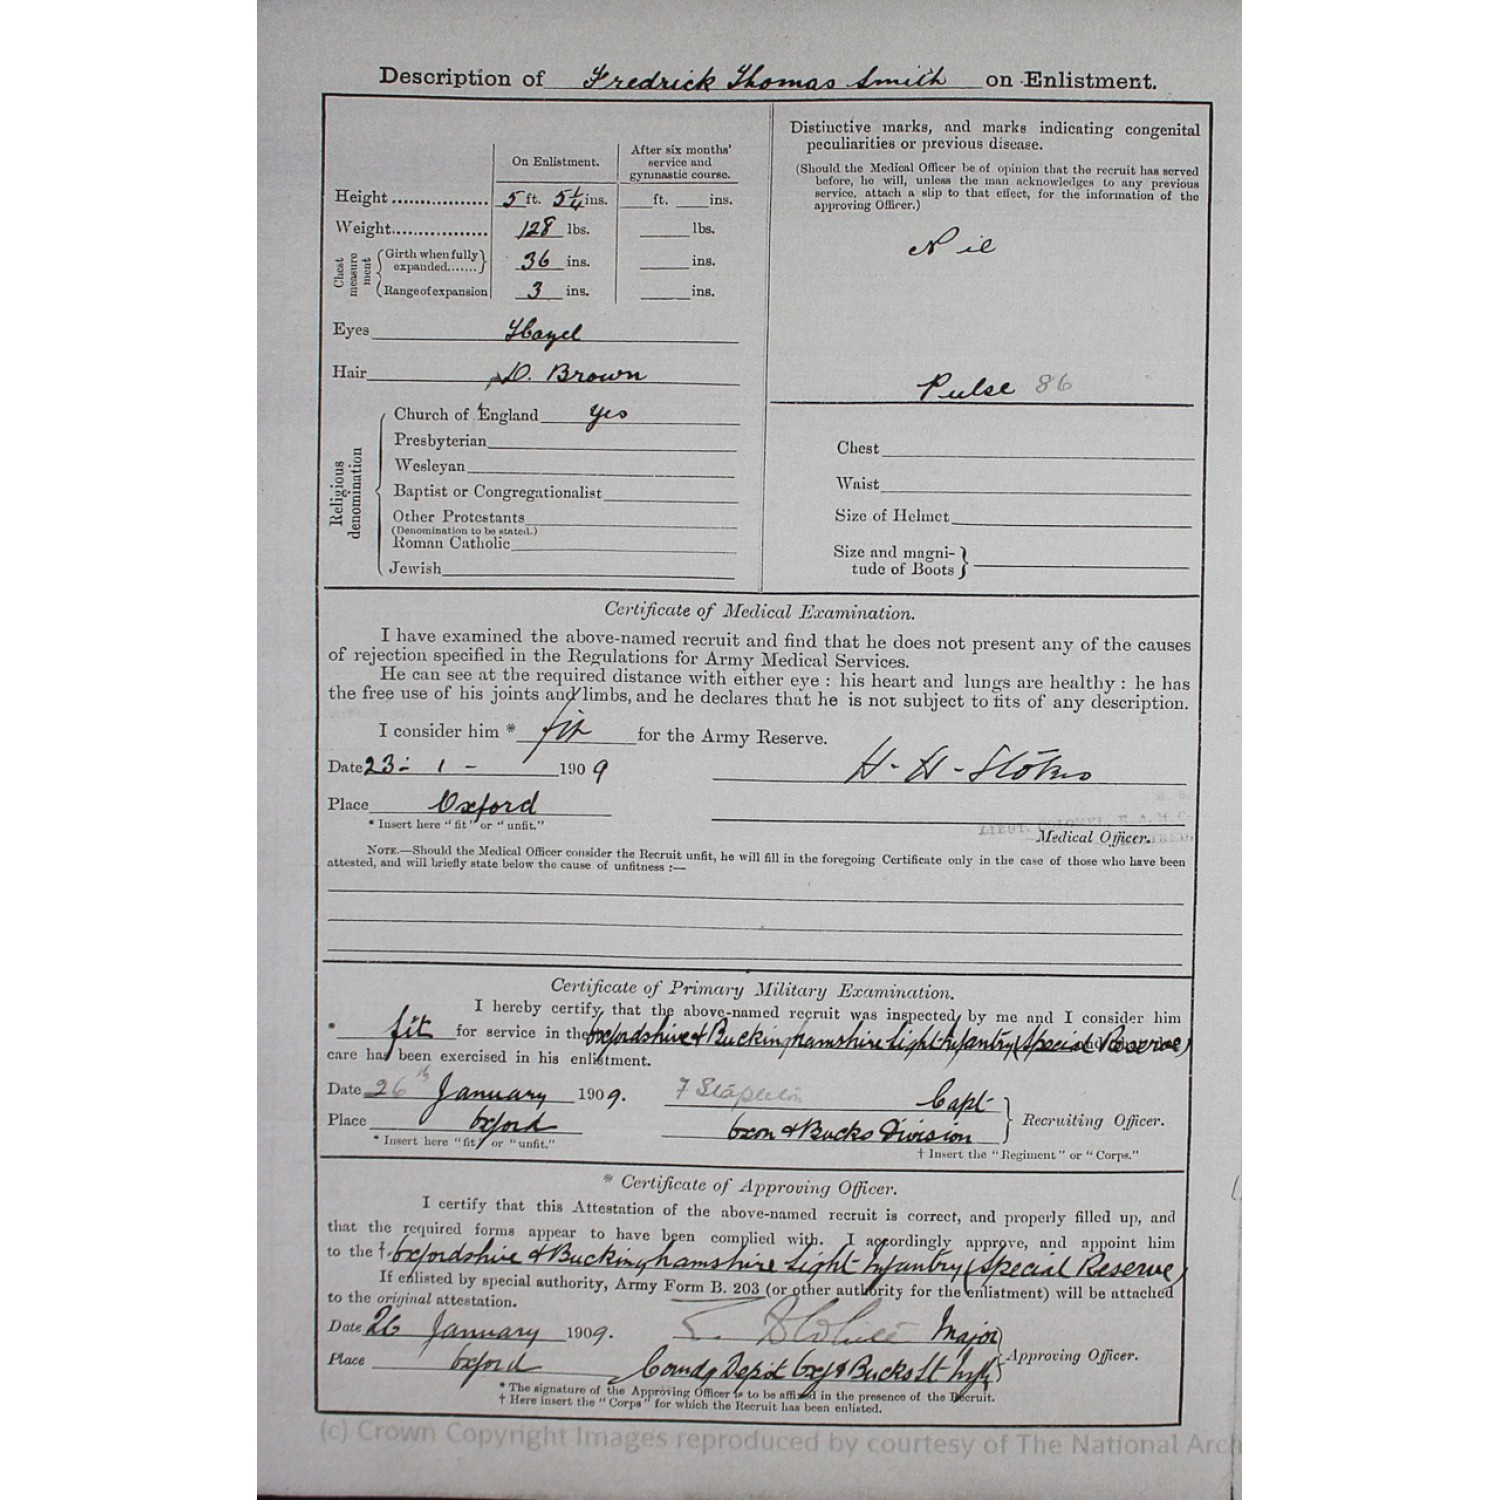 Description of Fredrick Thomas Smith on Enlistment.
On Enlistment.
After six months' service and gymnastic course.
Height 5 ft. 5¼ ins. ft. ins.
Weight 128 lbs. lbs.
Chest measurement
Girth when fully expanded 36 ins. ins.
Range of expansion 3 ins. ins.
Eyes Hazel
Hair D. Brown
Religious denomination
Church of England Yes
Presbyterian
Wesleyan
Baptist or Congregationalist
Other Protestants
(Denomination to be stated.)
Roman Catholic
Jewish
Distinctive marks, and marks indicating congenital
peculiarities or previous disease.
(Should the Medical Officer be of opinion that the recruit has served
before, he will, unless the man acknowledges to any previous
service, attach a slip to that effect, for the information of the
approving Officer.)
Nil
Pulse 86
Chest
Waist
Size of Helmet
Size and magni-
tude of Boots
Certificate of Medical Examination.
I have examined the above-named recruit and find that he does not present any of the causes
of rejection specified in the Regulations for Army Medical Services.
He can see at the required distance with either eye : his heart and lungs are healthy : he has
the free use of his joints and limbs, and he declares that he is not subject to fits of any description.
I consider him * fit for the Army Reserve.
Date 23 - 1 - 1909
H. H. Stokes
Place Oxford
* Insert here "fit" or "unfit."
LIEUT. COLONEL R.A.M.C.
Medical Officer.
NOTE.—Should the Medical Officer consider the Recruit unfit, he will fill in the foregoing Certificate only in the case of those who have been
attested, and will briefly state below the cause of unfitness :—
Certificate of Primary Military Examination.
I hereby certify, that the above-named recruit was inspected by me and I consider him
* fit for service in the Oxfordshire & Buckinghamshire Light Infantry (Special Reserve)
care has been exercised in his enlistment.
Date 26th January 1909. F Stapleton Capt
Place Oxford Oxon & Bucks Division
Recruiting Officer.
* Insert here "fit" or "unfit."
† Insert the "Regiment" or "Corps."
* Certificate of Approving Officer.
I certify that this Attestation of the above-named recruit is correct, and properly filled up, and
that the required forms appear to have been complied with. I accordingly approve, and appoint him
to the † Oxfordshire & Buckinghamshire Light Infantry (Special Reserve)
If enlisted by special authority, Army Form B. 203 (or other authority for the enlistment) will be attached
to the original attestation.
Date 26 January 1909. Major
Place Oxford Comdg Depôt Oxf & Bucks Lt Infy
Approving Officer.
* The signature of the Approving Officer is to be affixed in the presence of the Recruit.
† Here insert the "Corps" for which the Recruit has been enlisted.
(c) Crown Copyright Images reproduced by courtesy of The National Arch